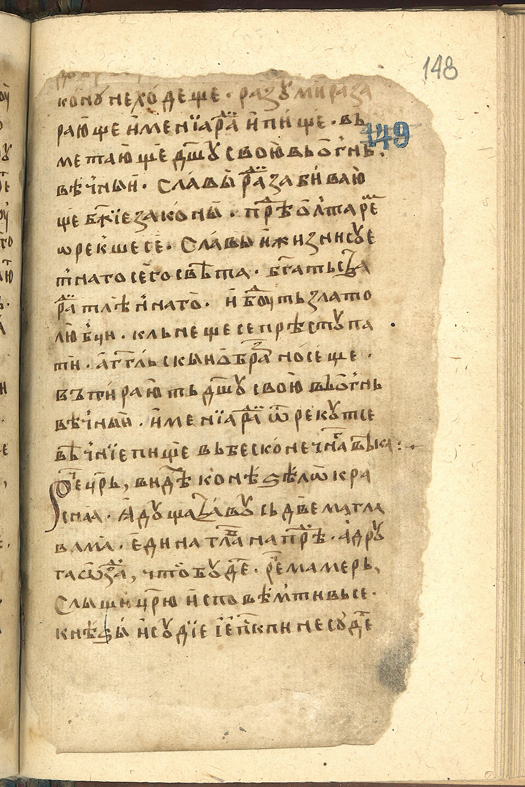 148
149
кону неходеще · разуми раза
рающе имениа рⷣа и пище · вь
метающе дш҃у свою вь огнь ·
вѣчныи · славы рⷣа забиваю
ще бж҃іе законы · прѣⷣ олтаре
ѡрекше се · славы и жизни суе
тна того сего свѣта · богатьства
рⷣа тлѣнна то · и боу ть злато
любци · кльнеще се прѣступа
ти · аг҃гльскы ѡбраⷥ носеще ·
вьпирають дш҃у свою вь огнь
вѣчныи · имениа рⷣа ѿрекутсе
вѣчніе пище вь бесконечнаⷶ вѣка :·
Рече цр҃ь, видѣⷯ конѣ ѕѣлѡ кра
сна · а дуща траву сь двема гла
вама · едина глаⷡа напрѣⷣ · а дру
га сьзаⷣ, что будеⷮ · рече мамерь,
Слыши цр҃ю и сповѣм ти вьсе ·
кнѣѕы и судіе іеп҃кпи не судеⷮ